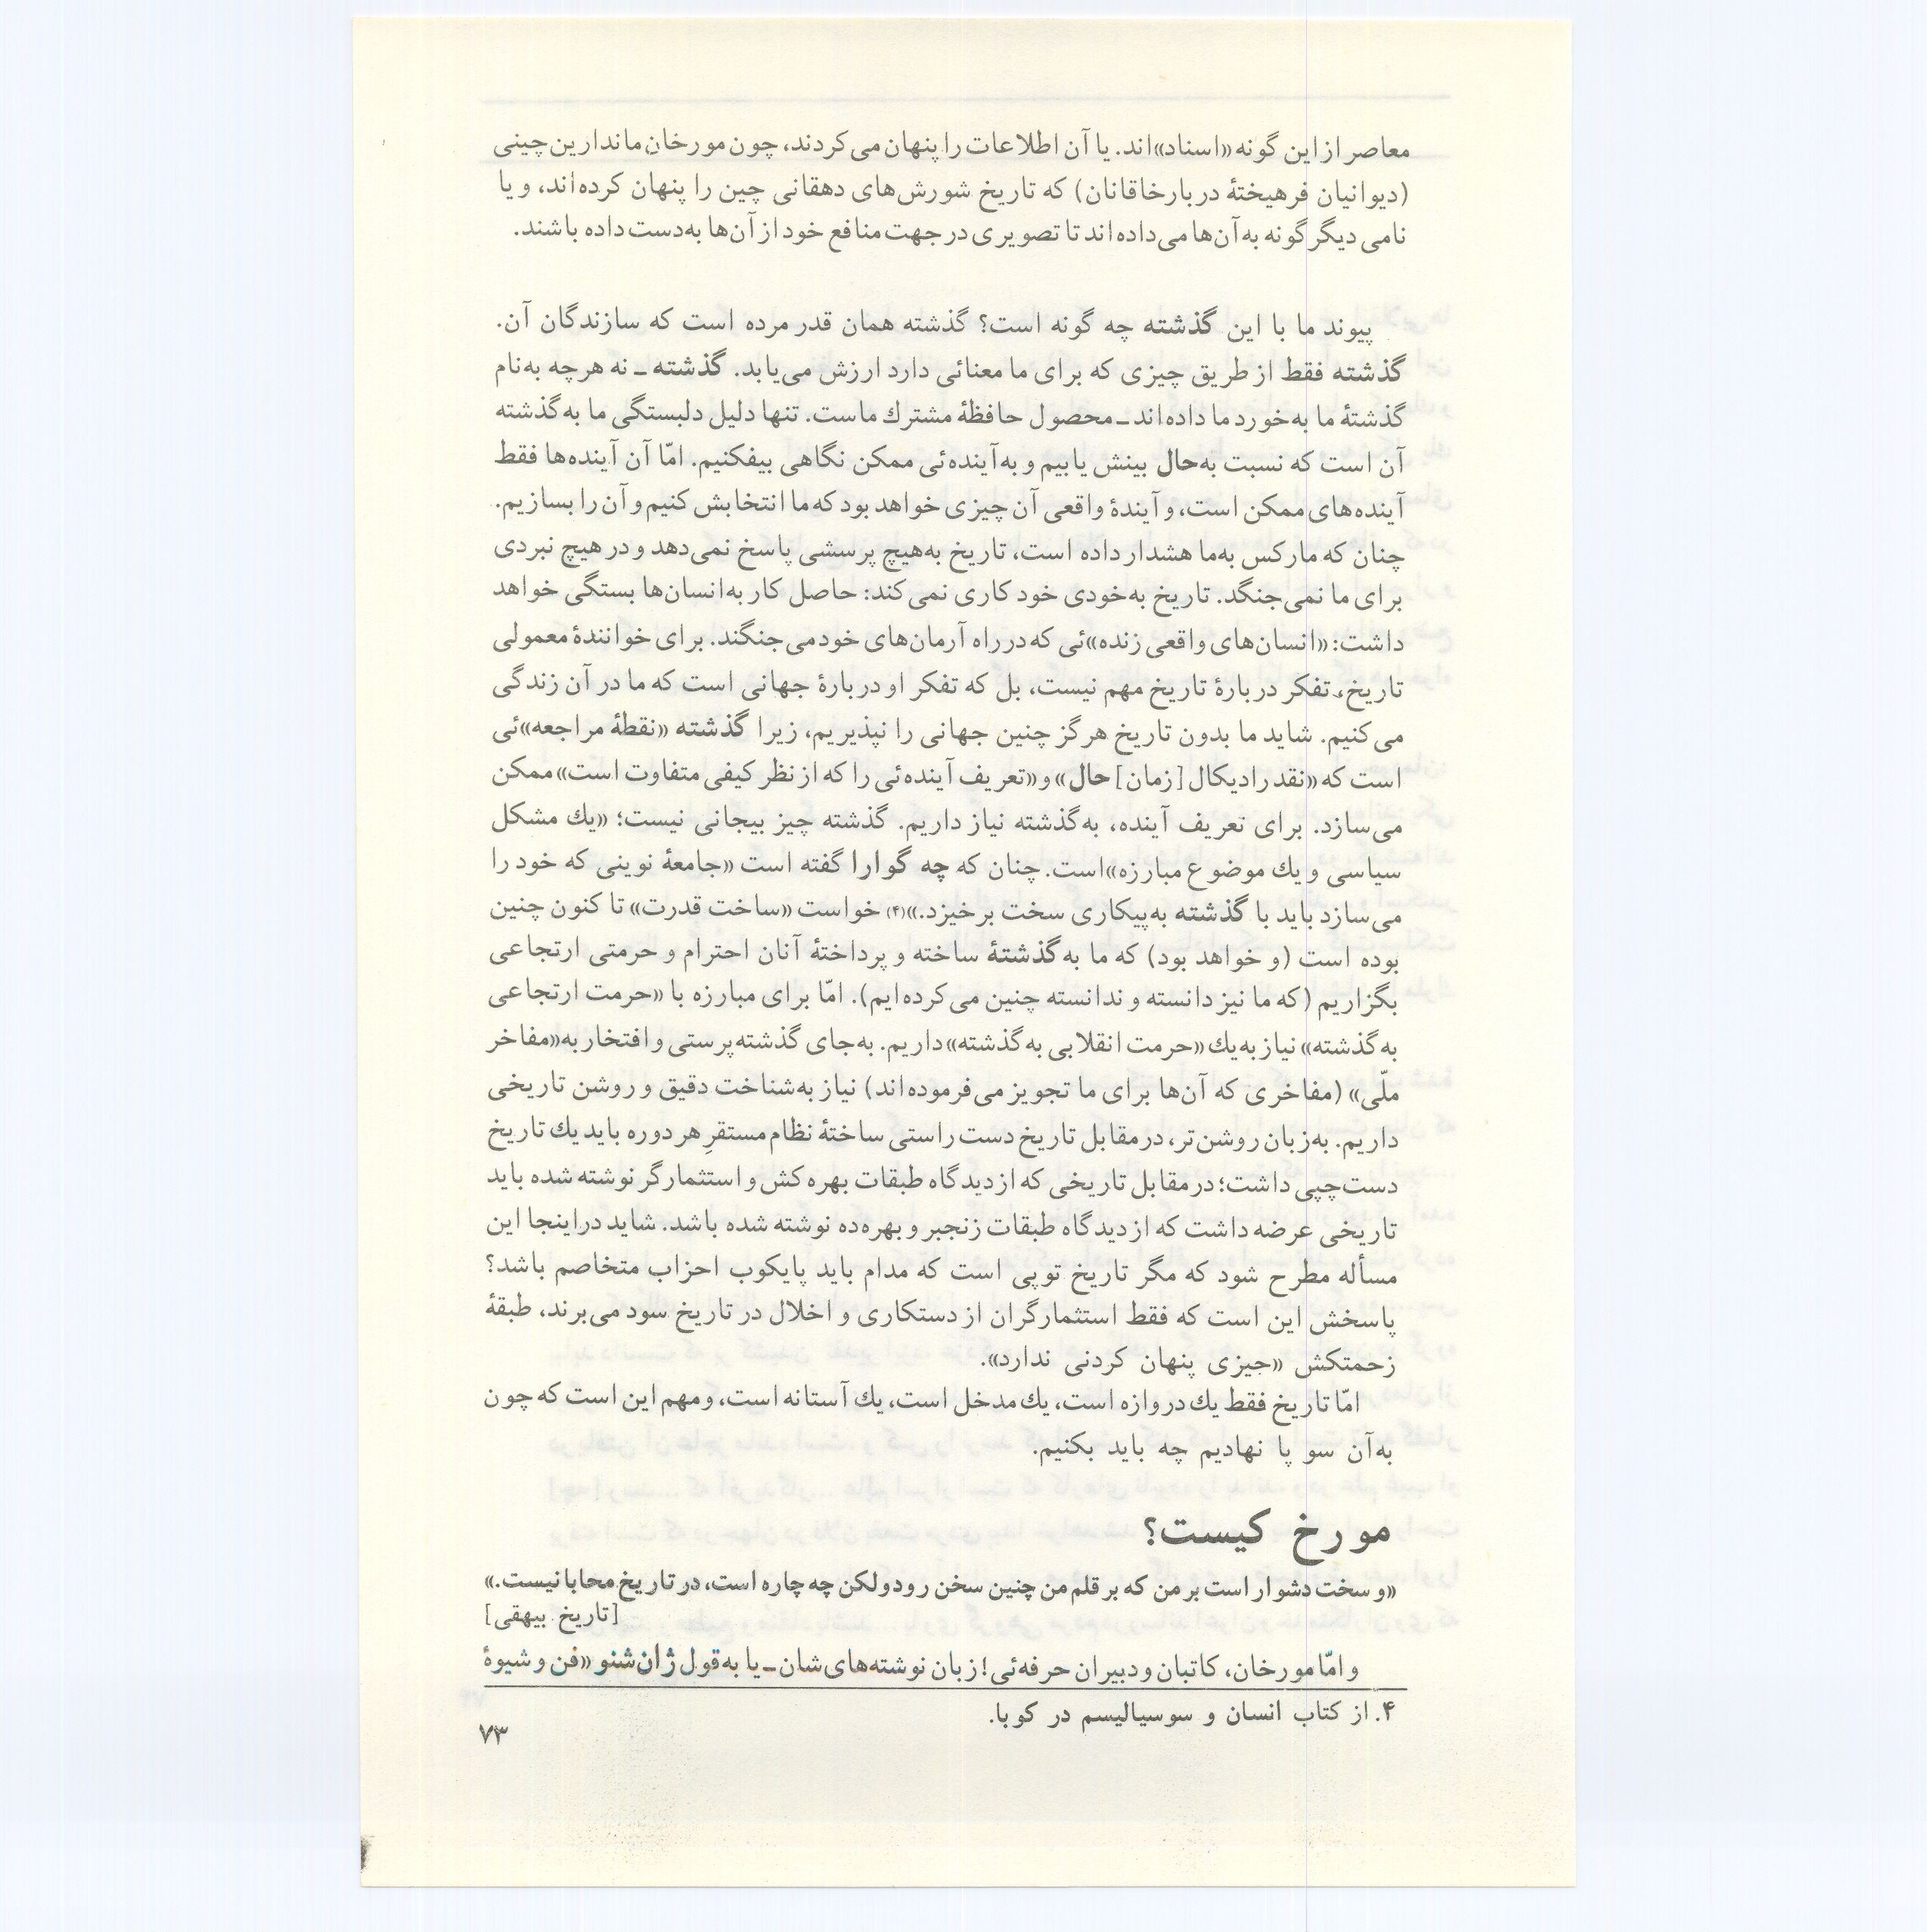 معاصر از این گونه «اسناد»اند. یا آن اطلاعات را پنهان می‌کردند، چون مورخان ماندارین چینی
(دیوانیان فرهیختهٔ دربار خاقانان) که تاریخ شورش‌های دهقانی چین را پنهان کرده‌اند، و یا
نامی دیگر گونه به‌آن‌ها می‌داده‌اند تا تصویری در جهت منافع خود از آن‌ها به‌دست داده باشند.
پیوند ما با این گذشته چه گونه است؟ گذشته همان قدر مرده است که سازندگان آن.
گذشته فقط از طریق چیزی که برای ما معنائی دارد ارزش می‌یابد. گذشته ـ نه هرچه به‌نام
گذشتهٔ ما به‌خورد ما داده‌اند ـ محصول حافظهٔ مشترك ماست. تنها دلیل دلبستگی ما به‌گذشته
آن است که نسبت به‌حال بینش یابیم و به‌آینده‌ئی ممکن نگاهی بیفکنیم. امّا آن آینده‌ها فقط
آینده‌های ممکن است، و آیندهٔ واقعی آن چیزی خواهد بود که ما انتخابش کنیم و آن را بسازیم.
چنان که مارکس به‌ما هشدار داده است، تاریخ به‌هیچ پرسشی پاسخ نمی‌دهد و در هیچ نبردی
برای ما نمی‌جنگد. تاریخ به‌خودی خود کاری نمی‌کند: حاصل کار به‌انسان‌ها بستگی خواهد
داشت: «انسان‌های واقعی زنده»ئی که در راه آرمان‌های خود می‌جنگند. برای خوانندهٔ معمولی
تاریخ، تفکر دربارهٔ تاریخ مهم نیست، بل که تفکر او دربارهٔ جهانی است که ما در آن زندگی
می‌کنیم. شاید ما بدون تاریخ هرگز چنین جهانی را نپذیریم، زیرا گذشته «نقطهٔ مراجعه»ئی
است که «نقد رادیکال [زمان] حال» و «تعریف آینده‌ئی را که از نظر کیفی متفاوت است» ممکن
می‌سازد. برای تعریف آینده، به‌گذشته نیاز داریم. گذشته چیز بیجانی نیست؛ «یك مشکل
سیاسی و یك موضوع مبارزه» است. چنان که چه گوارا گفته است «جامعهٔ نوینی که خود را
می‌سازد باید با گذشته به‌پیکاری سخت برخیزد.»(۴) خواست «ساخت قدرت» تا کنون چنین
بوده است (و خواهد بود) که ما به‌گذشتهٔ ساخته و پرداختهٔ آنان احترام و حرمتی ارتجاعی
بگزاریم (که ما نیز دانسته و ندانسته چنین می‌کرده‌ایم). امّا برای مبارزه با «حرمت ارتجاعی
به‌گذشته» نیاز به‌یك «حرمت انقلابی به‌گذشته» داریم. به‌جای گذشته‌پرستی و افتخار به«مفاخر
ملّی» (مفاخری که آن‌ها برای ما تجویز می‌فرموده‌اند) نیاز به‌شناخت دقیق و روشن تاریخی
داریم. به‌زبان روشن‌تر، در مقابل تاریخ دست راستی ساختهٔ نظام مستقرِ هر دوره باید یك تاریخ
دست‌چپی داشت؛ در مقابل تاریخی که از دیدگاه طبقات بهره‌کش و استثمارگر نوشته شده باید
تاریخی عرضه داشت که از دیدگاه طبقات زنجبر و بهره‌ده نوشته شده باشد. شاید در اینجا این
مسأله مطرح شود که مگر تاریخ توپی است که مدام باید پایکوب احزاب متخاصم باشد؟
پاسخش این است که فقط استثمارگران از دستکاری و اخلال در تاریخ سود می‌برند، طبقهٔ
زحمتکش «چیزی پنهان کردنی ندارد».
امّا تاریخ فقط یك دروازه است، یك مدخل است، یك آستانه است، و مهم این است که چون
به‌آن سو پا نهادیم چه باید بکنیم.
مورخ کیست؟
«و سخت دشوار است بر من که بر قلم من چنین سخن رود ولکن چه چاره است، در تاریخ محابا نیست.»
[تاریخ بیهقی]
و امّا مورخان، کاتبان و دبیران حرفه‌ئی! زبان نوشته‌های شان ـ یا به‌قول ژان شنو «فن و شیوهٔ
۴. از کتاب انسان و سوسیالیسم در کوبا.
۷۳